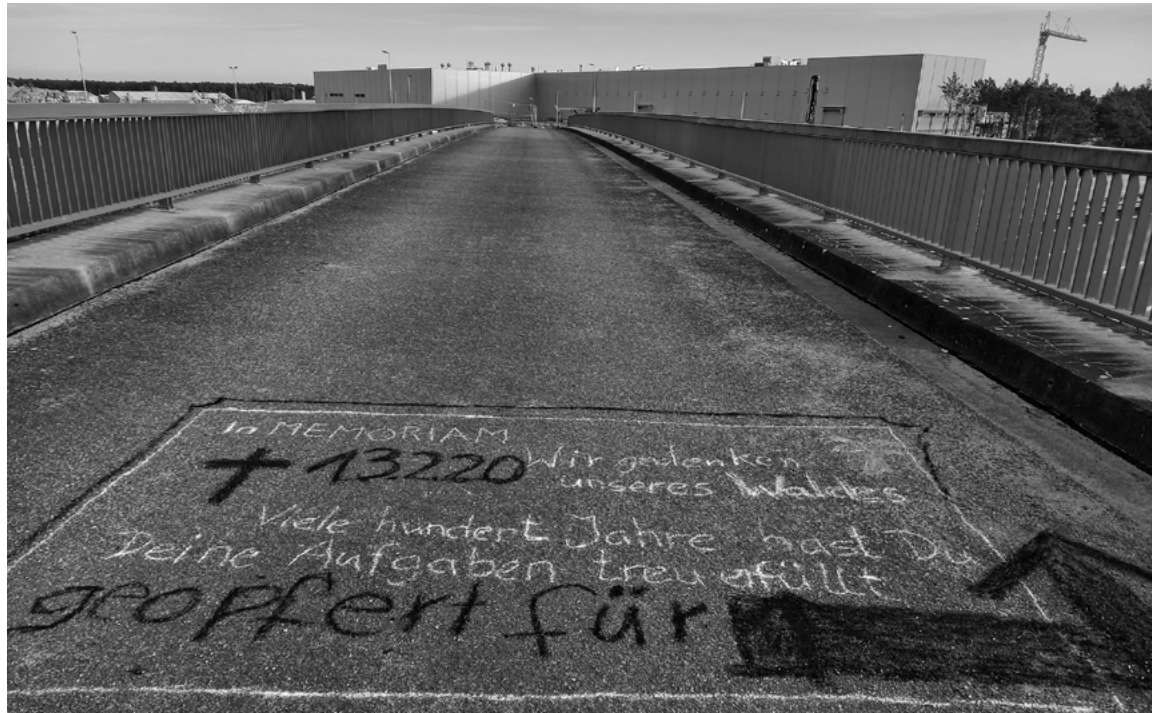 In MEMORIAM
+ 13.2.20 Wir gedenken
unseres Waldes
Viele hundert Jahre hast Du
Deine Aufgaben treu erfüllt
geopfert für